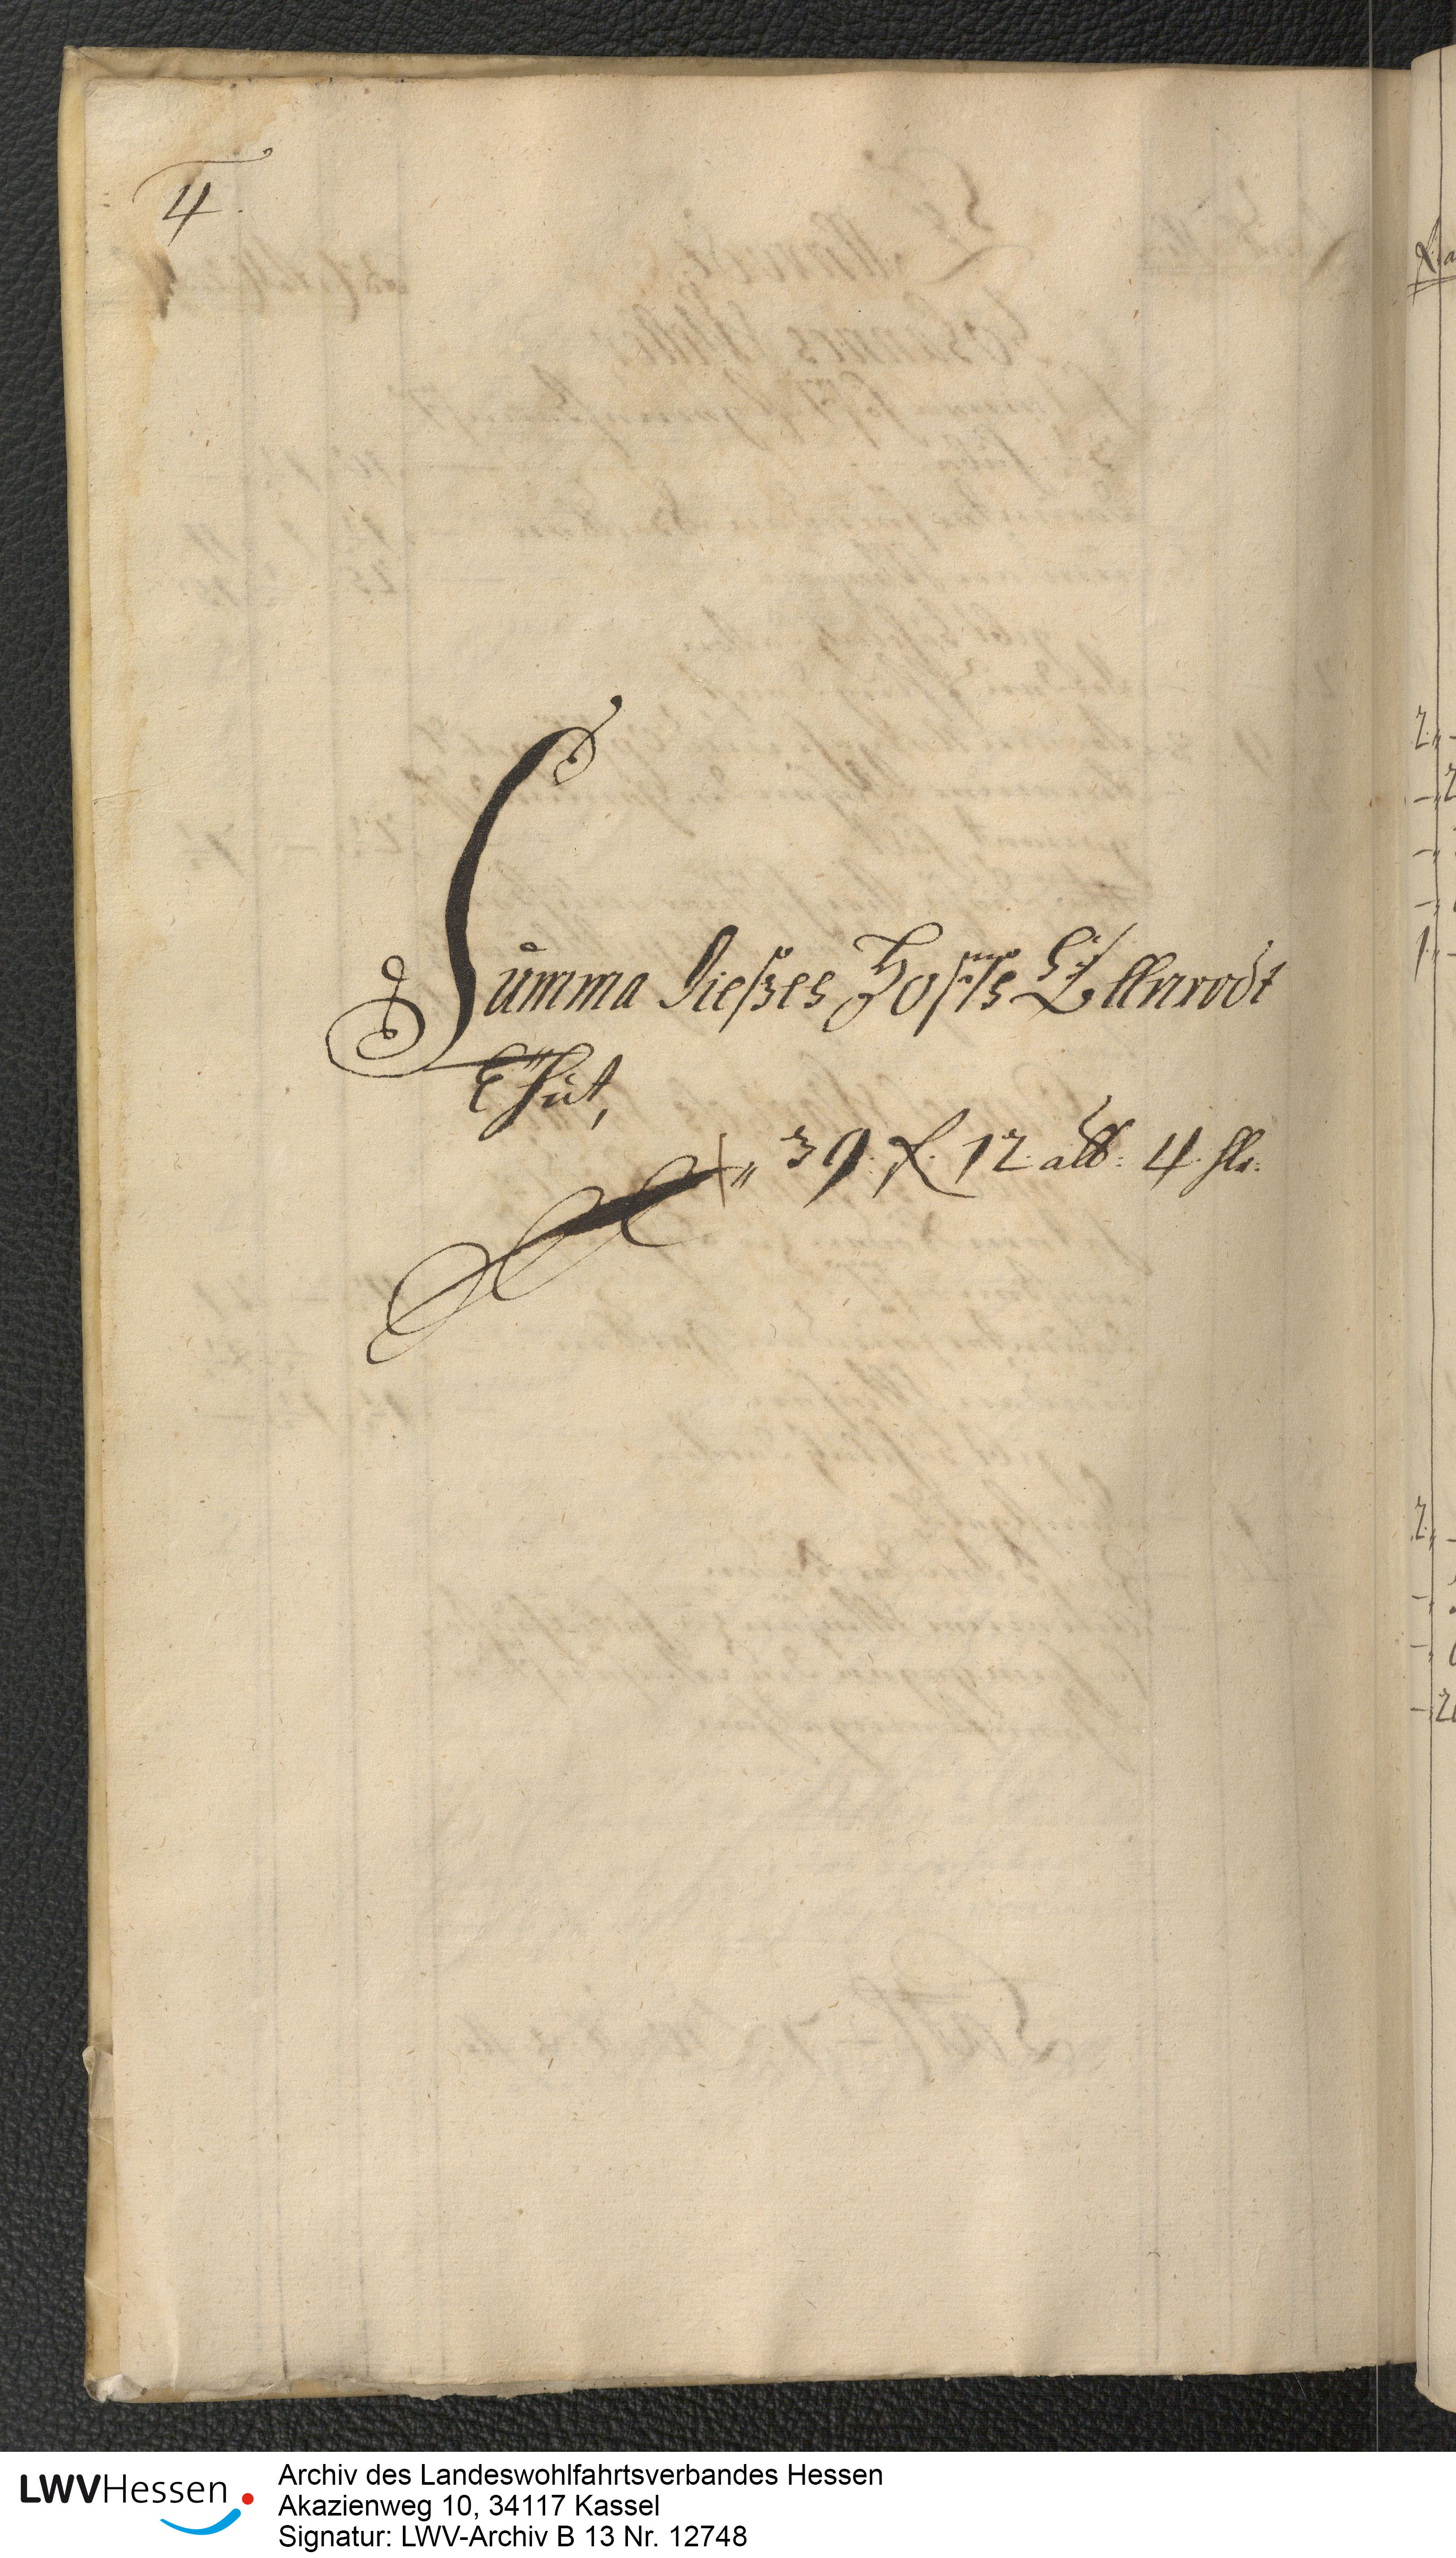 4.
Summa dießes Hoffs Ellnrodt
Thut,
39. f. 12. alb: 4. hlr:
LWVHessen
Archiv des Landeswohlfahrtsverbandes Hessen
Akazienweg 10, 34117 Kassel
Signatur: LWV-Archiv B 13 Nr. 12748